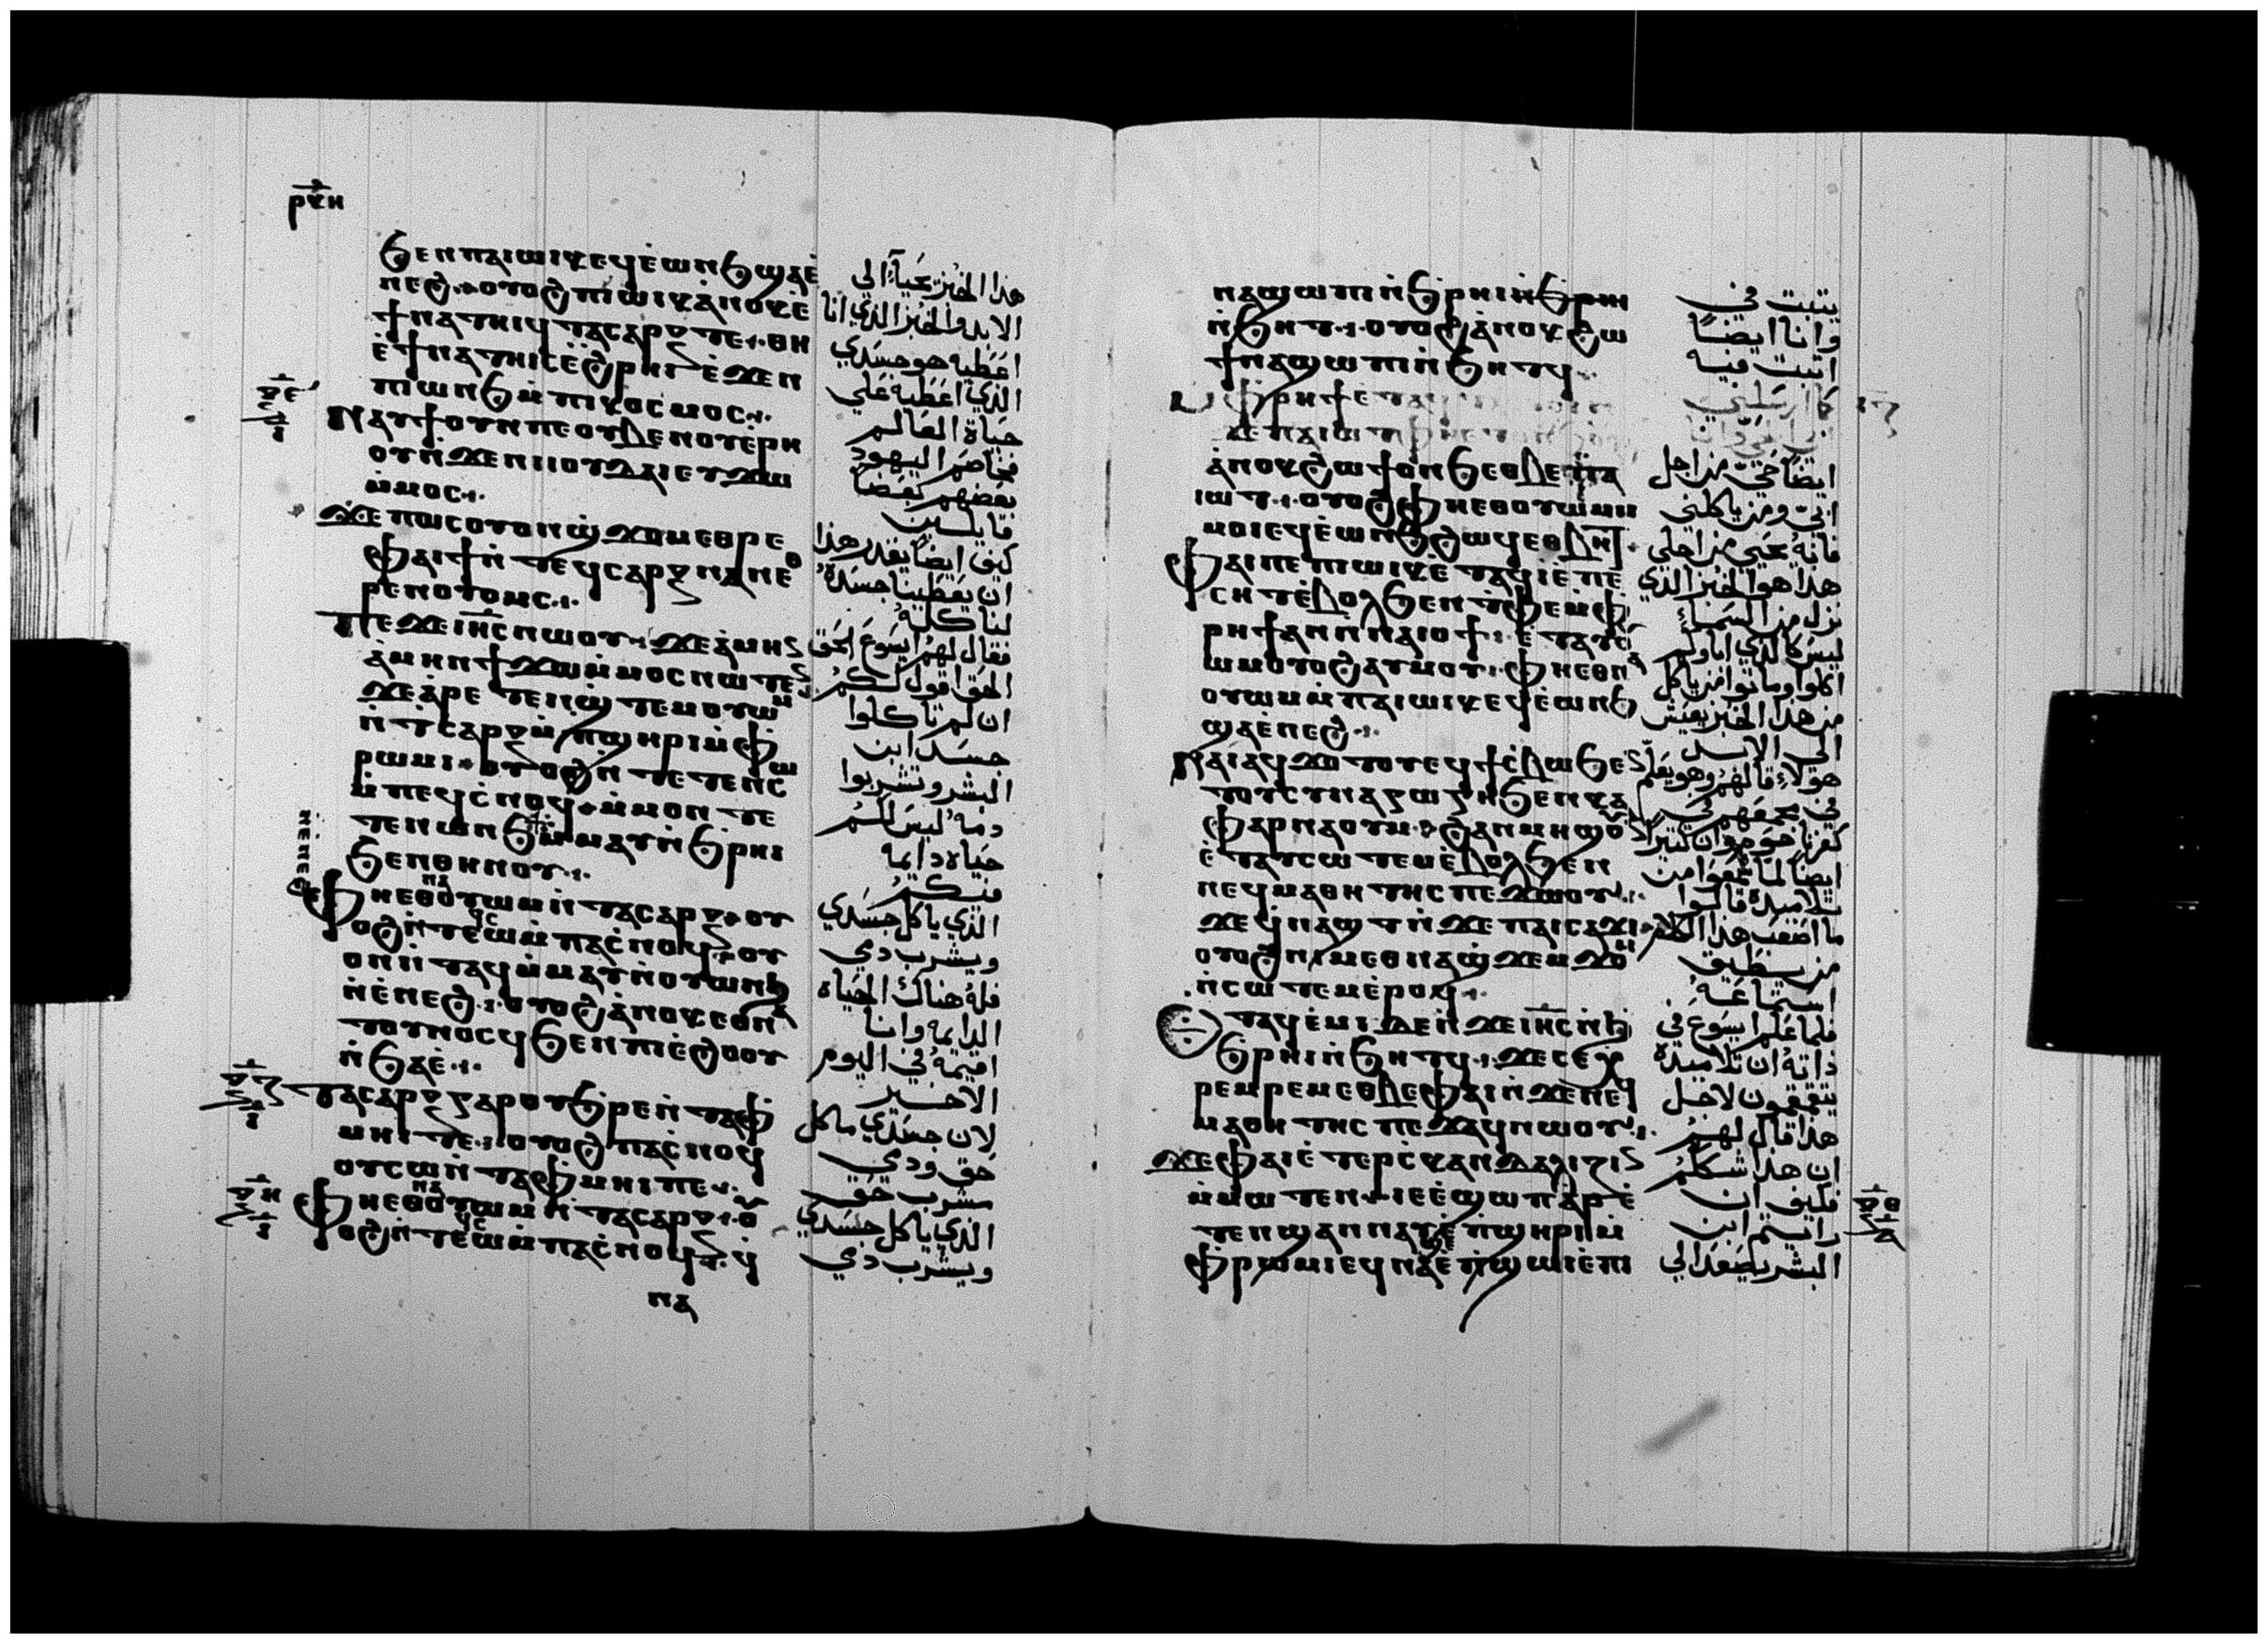 ⲣⲕⲏ
ϧⲉⲛ ⲡⲁⲓⲱⲓⲕ ⲉϥⲉ̀ⲱⲛϧ ϣⲁⲉ̀
ⲛⲉϩ ⲟⲩⲟϩ ⲡⲓⲱⲓⲕ ⲁ̀ⲛⲟⲕ ⲉ̀
ϯⲛⲁⲧⲏⲓϥ ⲧⲁⲥⲁⲣⲝ ⲧⲉ ⲑⲏ
ⲉ̀ϯⲛⲁⲧⲏⲓⲥ ⲉ̀ϩⲣⲏⲓ ⲉ̀ϫⲉⲛ
ⲡⲱⲛϧ ⲙ̀ⲡⲓⲕⲟⲥⲙⲟⲥ
ⲛⲁⲩϯ ⲟⲩⲛ ⲡⲉ ⲟⲩⲃⲉ ⲛⲟⲩⲉ̀ⲣⲏ
ⲟⲩ ⲛ̀ϫⲉ ⲛⲓⲓⲟⲩⲇⲁⲓ ⲉⲩϫⲱ
ⲙ̀ⲙⲟⲥ
ϫⲉ ⲡⲱⲥ ⲟⲩⲟⲛ ϣ̀ϫⲟⲙ ⲉⲑⲣⲉ
ⲫⲁⲓ ϯ ⲛ̀ⲧⲉϥⲥⲁⲣⲝ ⲛⲁⲛ ⲉⲑ
ⲣⲉⲛⲟⲩⲟⲙⲥ
ⲡⲉϫⲉ ⲓⲏⲥ ⲛⲱⲟⲩ ϫⲉ ⲁ̀ⲙⲏⲛ
ⲁ̀ⲙⲏⲛ ϯϫⲱ ⲙ̀ⲙⲟⲥ ⲛⲱⲧⲉⲛ
ϫⲉ ⲁ̀ⲣⲉⲧⲉⲛϣ̀ⲧⲉⲙⲟⲩⲱⲙ
ⲛ̀ⲧ̀ⲥⲁⲣⲝ ⲙ̀ⲡ̀ϣⲏⲣⲓ ⲙ̀ⲫ̀
ⲣⲱⲙⲓ ⲟⲩⲟϩ ⲛ̀ⲧⲉⲧⲉⲛⲥⲱ
ⲙ̀ⲡⲉϥⲥ̀ⲛⲟϥ ⲙ̀ⲙⲟⲛ ⲧⲉ
ⲧⲉⲛ ⲱⲛϧ ⲙ̀ⲙⲁⲩ ⲛ̀ϧⲣⲏⲓ
ϧⲉⲛ ⲑⲏⲛⲟⲩ
ⲫⲏⲉⲑⲛⲁⲟⲩⲱⲙ ⲛ̀ⲧⲁⲥⲁⲣⲝ ⲟⲩ
ⲟϩ ⲛ̀ⲧⲉϥⲥⲱ ⲙ̀ⲡⲁⲥ̀ⲛⲟϥ ⲟⲩ
ⲟⲛⲛ̀ⲧⲁϥ ⲙ̀ⲙⲁⲩ ⲛ̀ⲟⲩⲱⲛϧ
ⲛ̀ⲉ̀ⲛⲉϩ ⲟⲩⲟϩ ⲁ̀ⲛⲟⲕ ⲉⲑⲛⲁ
ⲧⲟⲩⲛⲟⲥϥ ϧⲉⲛ ⲡⲓⲉ̀ϩⲟⲟⲩ
ⲛ̀ϧⲁⲉ̀
ⲧⲁⲥⲁⲣⲝ ⲅⲁⲣ ⲟⲩϧⲣⲉ ⲛ̀ⲧⲁⲫ̀
ⲙⲏⲓ ⲧⲉ ⲟⲩⲟϩ ⲡⲁⲥ̀ⲛⲟϥ
ⲟⲩⲥⲱ ⲛ̀ⲧⲁⲫ̀ⲙⲏⲓ ⲡⲉ
ⲫⲏⲉⲑⲛⲁⲟⲩⲱⲙ ⲛ̀ⲧⲁⲥⲁⲣⲝ ⲟⲩ
ⲟϩ ⲛ̀ⲧⲉϥⲥⲱ ⲙ̀ⲡⲁⲥ̀ⲛⲟϥ ϥ̀
ⲛⲁ
هذا الخبز يحيا الى
الابد والخبز الذي انا
اعطيه هو جسدي
الذي اعطيه على
حياة العالم
فخاصم اليهود
بعضهم بعضا
قايلين
كيف ايضا يقدر هذا
ان يعطينا جسده
لناكله
فقال لهم ايسوع الحق
الحق اقول لكم
ان لم تاكلوا
جسد ابن
البشر وتشربوا
دمه ليس لكم
حياه دايمه
فيكم
الذي ياكل جسدي
ويشرب دمي
فله هناك الحياه
الدايمه وانا
اقيمه في اليوم
الاخير
لان جسدي ماكل
حق ودمي
مشرب حق
الذي ياكل جسدي
ويشرب دمي
ⲛⲁϣⲱⲡⲓ ⲛ̀ϧⲣⲏⲓ ⲛ̀ϧⲣⲏⲓ
ⲛ̀ϧⲏⲧ ⲟⲩⲟϩ ⲁ̀ⲛⲟⲕ ϩⲱ
ϯⲛⲁϣⲱⲡⲓ ⲛ̀ϧⲏⲧϥ
ⲙ̀ⲫ̀ⲣⲏϯ ⲉⲧⲁϥ
ϫⲉ ⲡⲁⲓⲱⲧ
ⲁ̀ⲛⲟⲕ ϩⲱ ϯⲟⲛϧ ⲉⲑⲃⲉ ⲡⲁ
ⲓⲱⲧ ⲟⲩⲟϩ ⲫⲏⲉⲑⲟⲩⲱⲙ ⲙ̀
ⲙⲟⲓ ⲉϥⲉ̀ⲱⲛϧ ϩⲱϥ ⲉⲑⲃⲏⲧ
ⲫⲁⲓ ⲡⲉ ⲡⲓⲱⲓⲕ ⲉ̀ⲧⲁϥⲓ̀ ⲉ̀ⲡⲉ
ⲥⲏⲧ ⲉ̀ⲃⲟⲗ ϧⲉⲛ ⲧ̀ⲫⲉ ⲙ̀ⲫ̀
ⲣⲏϯ ⲁⲛ ⲛ̀ⲛⲁⲓⲟϯ ⲉ̀ⲧⲁⲩⲟⲩ
ⲱⲙ ⲟⲩⲟϩ ⲁⲩⲙⲟⲩ ⲫⲏⲉⲑⲛⲁ
ⲟⲩⲱⲙ ⲙ̀ⲡⲁⲓⲱⲓⲕ ⲉϥⲉ̀ⲱⲛϧ
ϣⲁⲉ̀ⲛⲉϩ
ⲛⲁⲓ ⲁϥϫⲟⲧⲟⲩ ⲉϥϯⲥ̀ⲃⲱ ϧⲉⲛ
ⲧⲟⲩⲥⲩⲛⲁⲅⲱⲅⲏ ϧⲉⲛ ⲕⲁ
ⲫⲁⲣⲛⲁⲟⲩⲙ ϩⲁⲛⲙⲏϣ ⲟⲩⲛ
ⲉ̀ⲧⲁⲩⲥⲱⲧⲉⲙ ⲉ̀ⲃⲟⲗ ϧⲉⲛ
ⲛⲉϥⲙⲁⲑⲏⲧⲏⲥ ⲡⲉϫⲱⲟⲩ
ϫⲉ ϥ̀ⲛⲁϣⲧ ⲛ̀ϫⲉ ⲡⲁⲓⲥⲁϫⲓ
ⲟⲩⲟϩ ⲛⲓⲙ ⲉⲑⲛⲁϣ̀ϫⲉⲙϫⲟⲙ
ⲛ̀ⲥⲱⲧⲉⲙ ⲉ̀ⲣⲟϥ
ⲉⲧⲁϥⲉ̀ⲙⲓ ⲇⲉ ⲛ̀ϫⲉ ⲓⲏⲥ ⲛ̀
ϧ̀ⲣⲏⲓ ⲛ̀ϧⲏⲧϥ ϫⲉ ⲥⲉⲭ̀
ⲣⲉⲙⲣⲉⲙ ⲉⲑⲃⲉ ⲫⲁⲓ ⲛ̀ϫⲉ ⲛⲉϥ
ⲙⲁⲑⲏⲧⲏⲥ ⲡⲉϫⲁϥ ⲛⲱⲟⲩ
ϫⲉ ⲫⲁⲓ ⲉⲧⲉⲣⲥ̀ⲕⲁⲛⲇⲁⲗⲓⲍⲓⲛ
ⲙ̀ⲙⲱⲧⲉⲛ ⲓⲉ ⲉ̀ϣⲱⲡ ⲁ̀ⲣⲉ
ⲧⲉⲛϣⲁⲛⲛⲁⲩ ⲉ̀ⲡ̀ϣⲏⲣⲓ ⲙ̀
ⲫ̀ⲣⲱⲙⲓ ⲉϥⲛⲁϣⲉ ⲛ̀ϣⲱⲓ ⲉ̀ⲡⲓ
يتبت في
وانا ايضا
اتبت فيه
كما ارسلني
ايضا حي من اجل
ابي ومن ياكلني
فانه يحيى من اجلي
هذا هو الخبز الذي
نزل من السماء
ليس كالذي اباوكم
اكلوا وماتوا من ياكل
من هذا الخبز يعيش
الى الابد
هولاء قالهم وهو يعلم
في مجمعهم في
كفرناحوم وان كتيرا
ايضا لما سمعوا من
تلاميذه قالوا
ما اصعب هذا الكلام
من يستطيق
استماعه
فلما علم ايسوع في
ذاته ان تلاميذه
يتقمقمون لاجل
هذا قال لهم
ان هذا شككم
فكيف ان
رايتم ابن
البشر يصعد الى